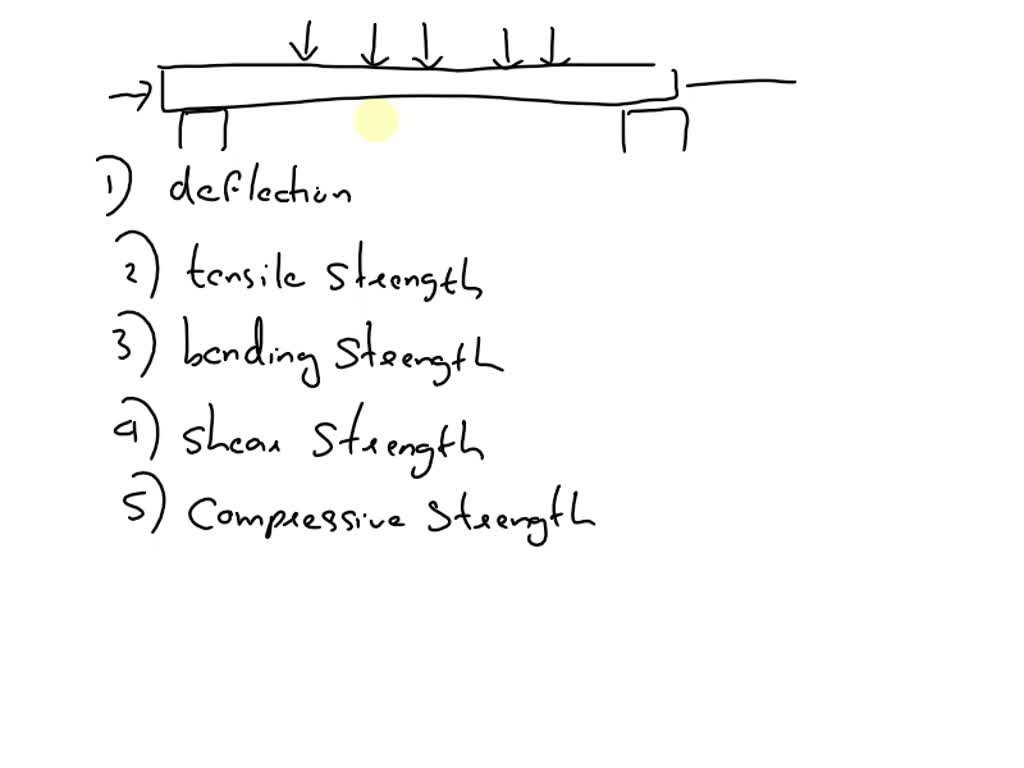 1) deflection
2) tensile strength
3) bending strength
4) shear strength
5) compressive strength